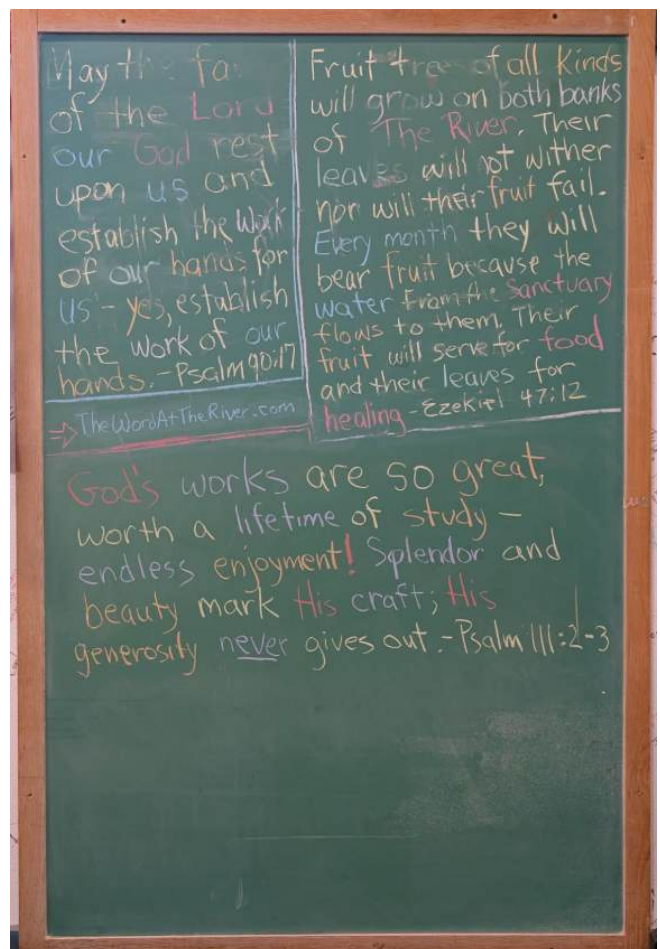 May the fa
of the Lord
our God rest
upon us and
establish the work
of our hands for
us - yes, establish
the work of our
hands. - Psalm 90:17
TheWordAtTheRiver.com
Fruit trees of all kinds
will grow on both banks
of The River. Their
leaves will not wither
nor will their fruit fail.
Every month they will
bear fruit because the
water from the Sanctuary
flows to them. Their
fruit will serve for food
and their leaves for
healing - Ezekiel 47:12
God's works are so great,
worth a lifetime of study -
endless enjoyment! Splendor and
beauty mark His craft; His
generosity never gives out. - Psalm 111:2-3